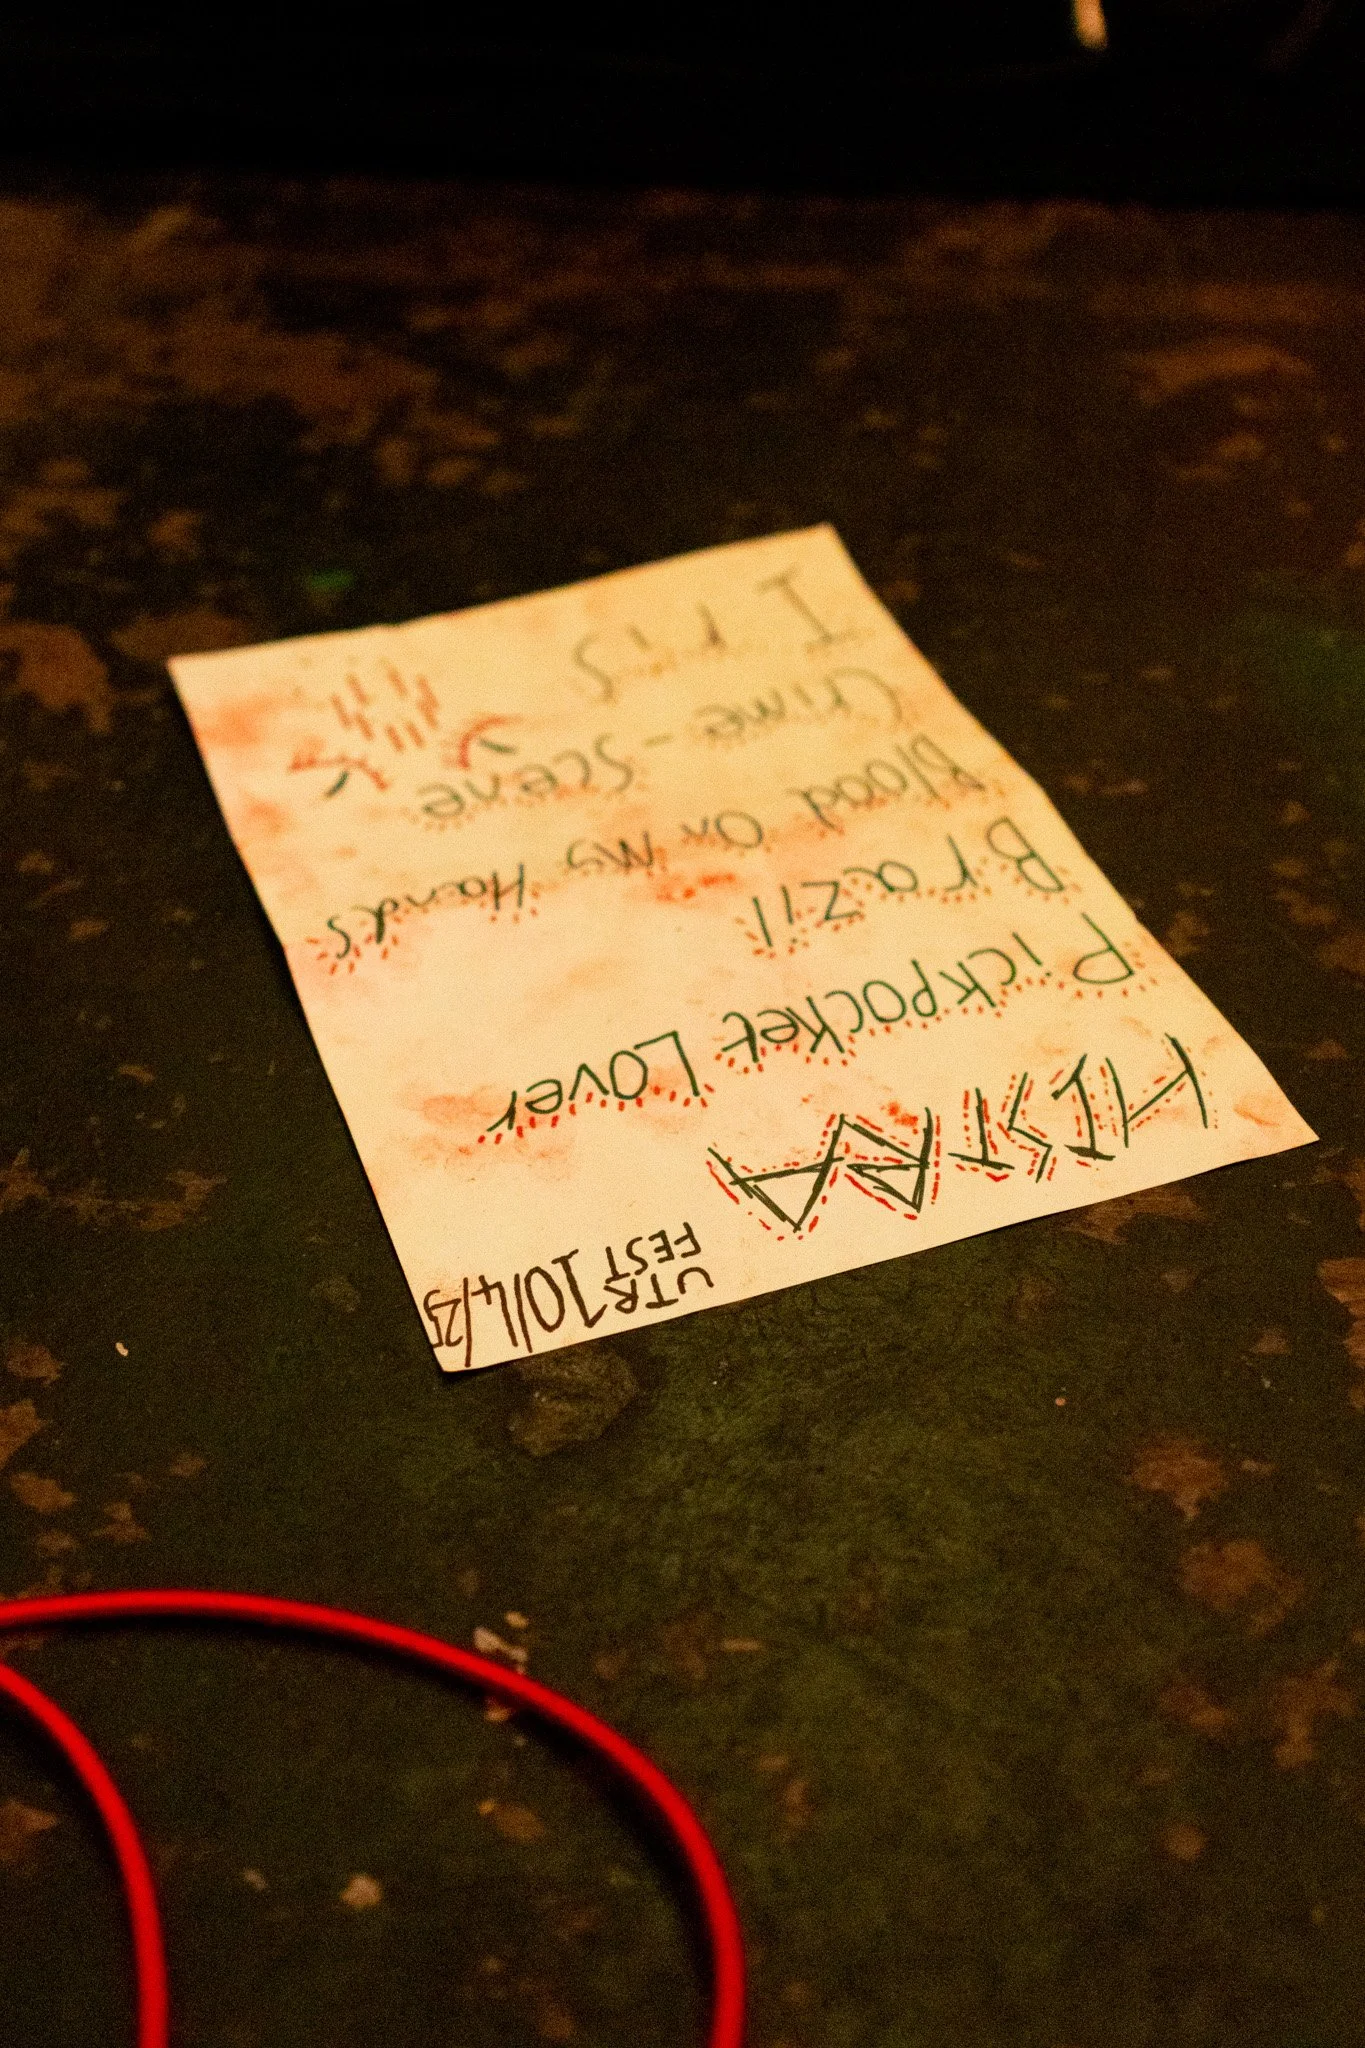 HISTRA
UTR
FEST
10/4/25
Pickpocket Lover
Brazil
Blood On My Hands
Crime-Scene
Iris